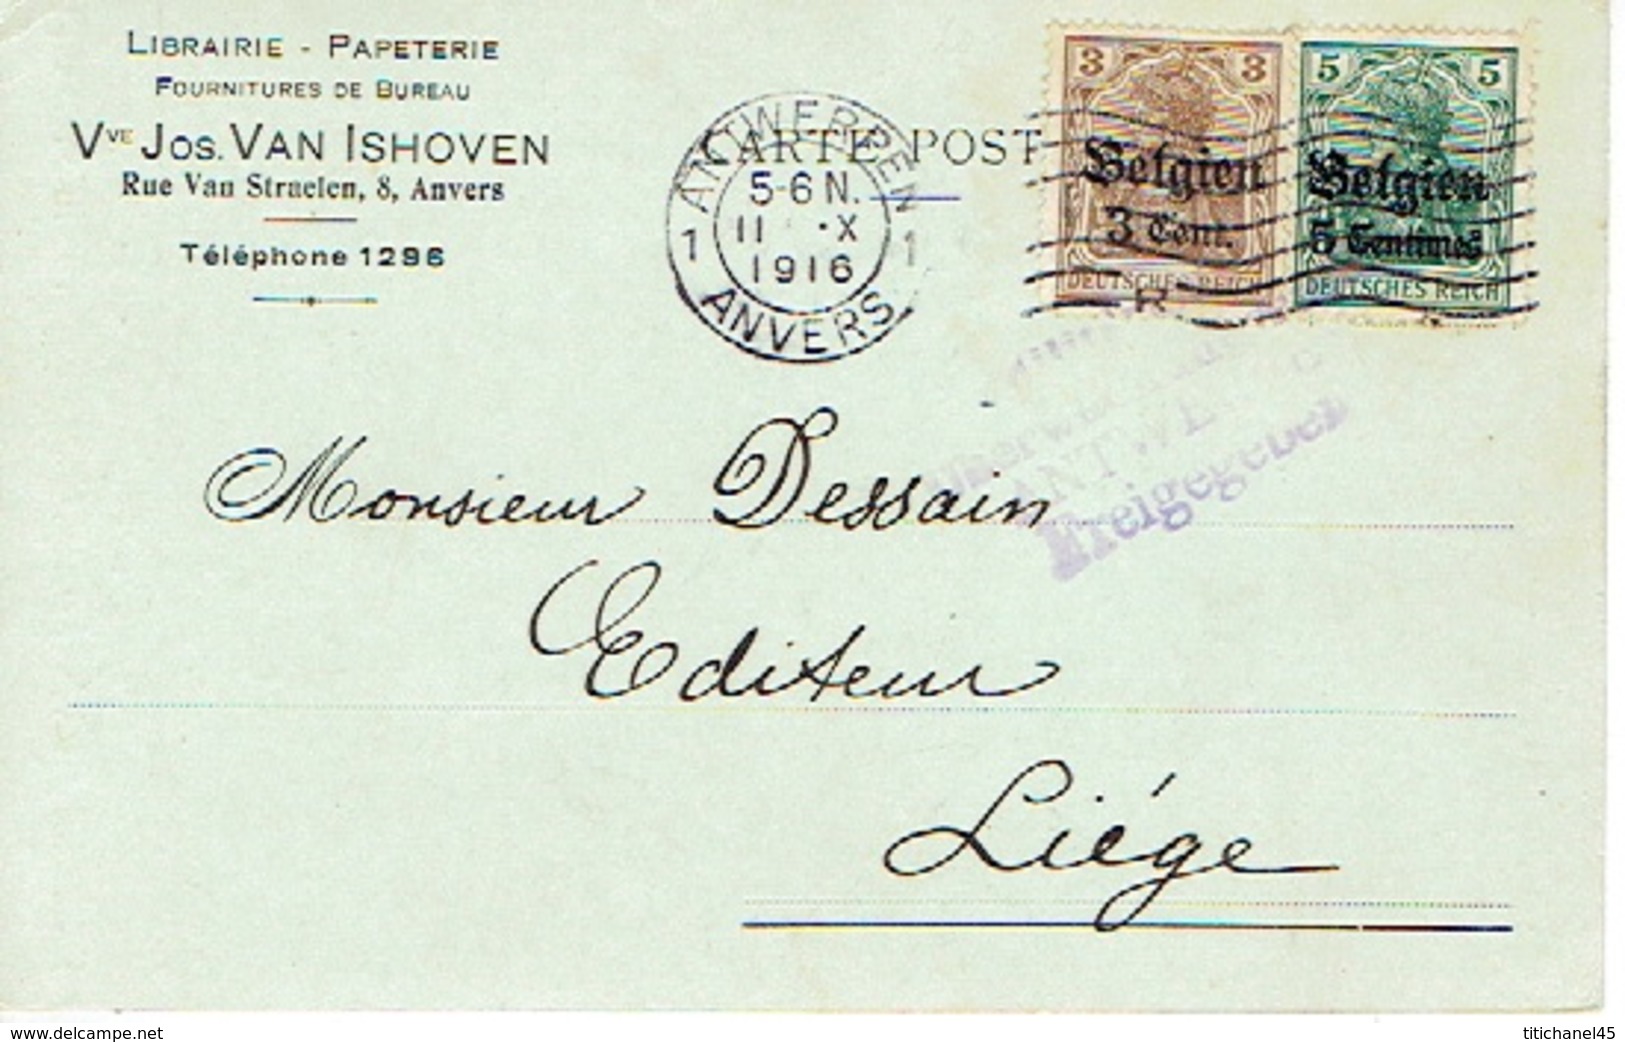 LIBRAIRIE - PAPETERIE
FOURNITURES DE BUREAU
Vve JOS. VAN ISHOVEN
Rue Van Straelen, 8, Anvers
Téléphone 1296
CARTE POST
ANTWERPEN
5-6 N.
11 X
1916
1 1
ANVERS
3 3
Belgien
3 Cent.
DEUTSCHES REICH
5 5
Belgien
5 Centimes
DEUTSCHES REICH
Freigegeben
Monsieur Dessain
Editeur
Liége
www.delcampe.net
titichanel45